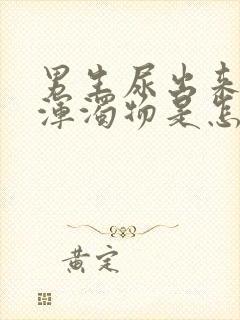 男生尿出来
浑浊物是怎
黄定